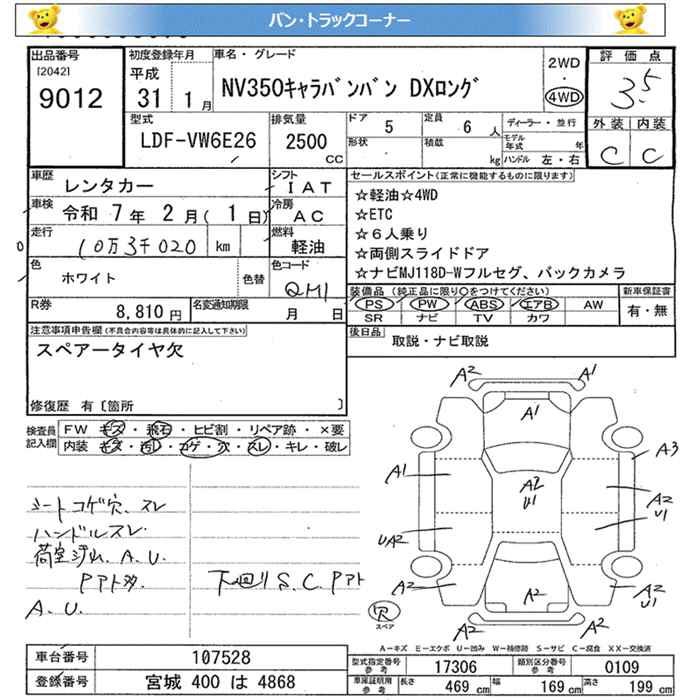 バン・トラックコーナー
出品番号
[2042]
9012
初度登録年月
平成
31 1月
車名・グレード
NV350キャラバンバン DXロング
2WD
・
4WD
評価点
3.5
外装 内装
C C
型式
LDF-VW6E26
排気量
2500
CC
ドア 5
定員 6 人
形状
積載 kg
ディーラー・並行
モデル年式 年
ハンドル 左・右
車歴 レンタカー
シフト IAT
車検 令和 7年 2月 ( 1日)
冷房 AC
走行 10万3千020 km
燃料 軽油
色 ホワイト
色替
色コード QM1
R券 8,810円
名変通知期限 月 日
セールスポイント(正常に機能するものに限ります)
☆軽油☆4WD
☆ETC
☆6人乗り
☆両側スライドドア
☆ナビMJ118D-Wフルセグ、バックカメラ
装備品 (純正品に限り○をつけてください)
PS PW ABS エアB AW
SR ナビ TV カワ
新車保証書
有・無
後日品 取説・ナビ取説
注意事項申告欄(不具合内容等は具体的に記入して下さい)
スペアータイヤ欠
修復歴 有〔箇所 〕
検査員記入欄
FW キズ・飛石・ヒビ割・リペア跡・×要
内装 キズ・汚れ・コゲ・穴・スレ・キレ・破レ
シートコゲ穴、スレ
ハンドルスレ
荷室汚れ、A.U.
Pアト多.
A.U.
下回りS.C.Pアト
A2 A1
A1
A1 A2 U1 A3
A2 U1
UA2
A2 A2 A2 U1
スペア
A-キズ E-エクボ U-凹み W-補修跡 S-サビ C-腐食 XX-交換済
車台番号 107528
登録番号 宮城 400 は 4868
型式指定番号 参考 17306
類別区分番号 参考 0109
車庫証明用 参考 長さ 469 cm 幅 169 cm 高さ 199 cm